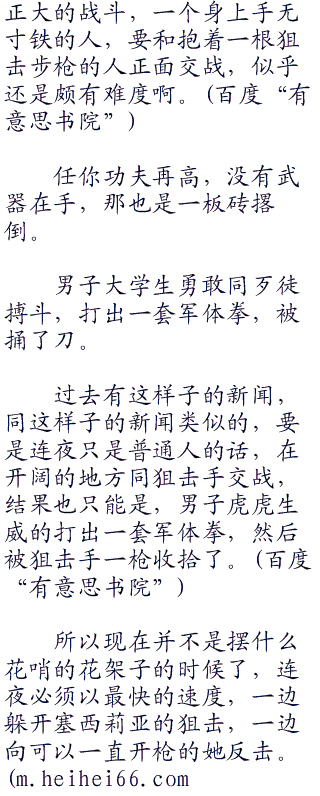 正大的战斗，一个身上手无
寸铁的人，要和抱着一根狙
击步枪的人正面交战，似乎
还是颇有难度啊。(百度“有
意思书院”)
任你功夫再高，没有武
器在手，那也是一板砖撂
倒。
男子大学生勇敢同歹徒
搏斗，打出一套军体拳，被
捅了刀。
过去有这样子的新闻，
同这样子的新闻类似的，要
是连夜只是普通人的话，在
开阔的地方同狙击手交战，
结果也只能是，男子虎虎生
威的打出一套军体拳，然后
被狙击手一枪收拾了。(百度
“有意思书院”)
所以现在并不是摆什么
花哨的花架子的时候了，连
夜必须以最快的速度，一边
躲开塞西莉亚的狙击，一边
向可以一直开枪的她反击。
(m.heihei66.com